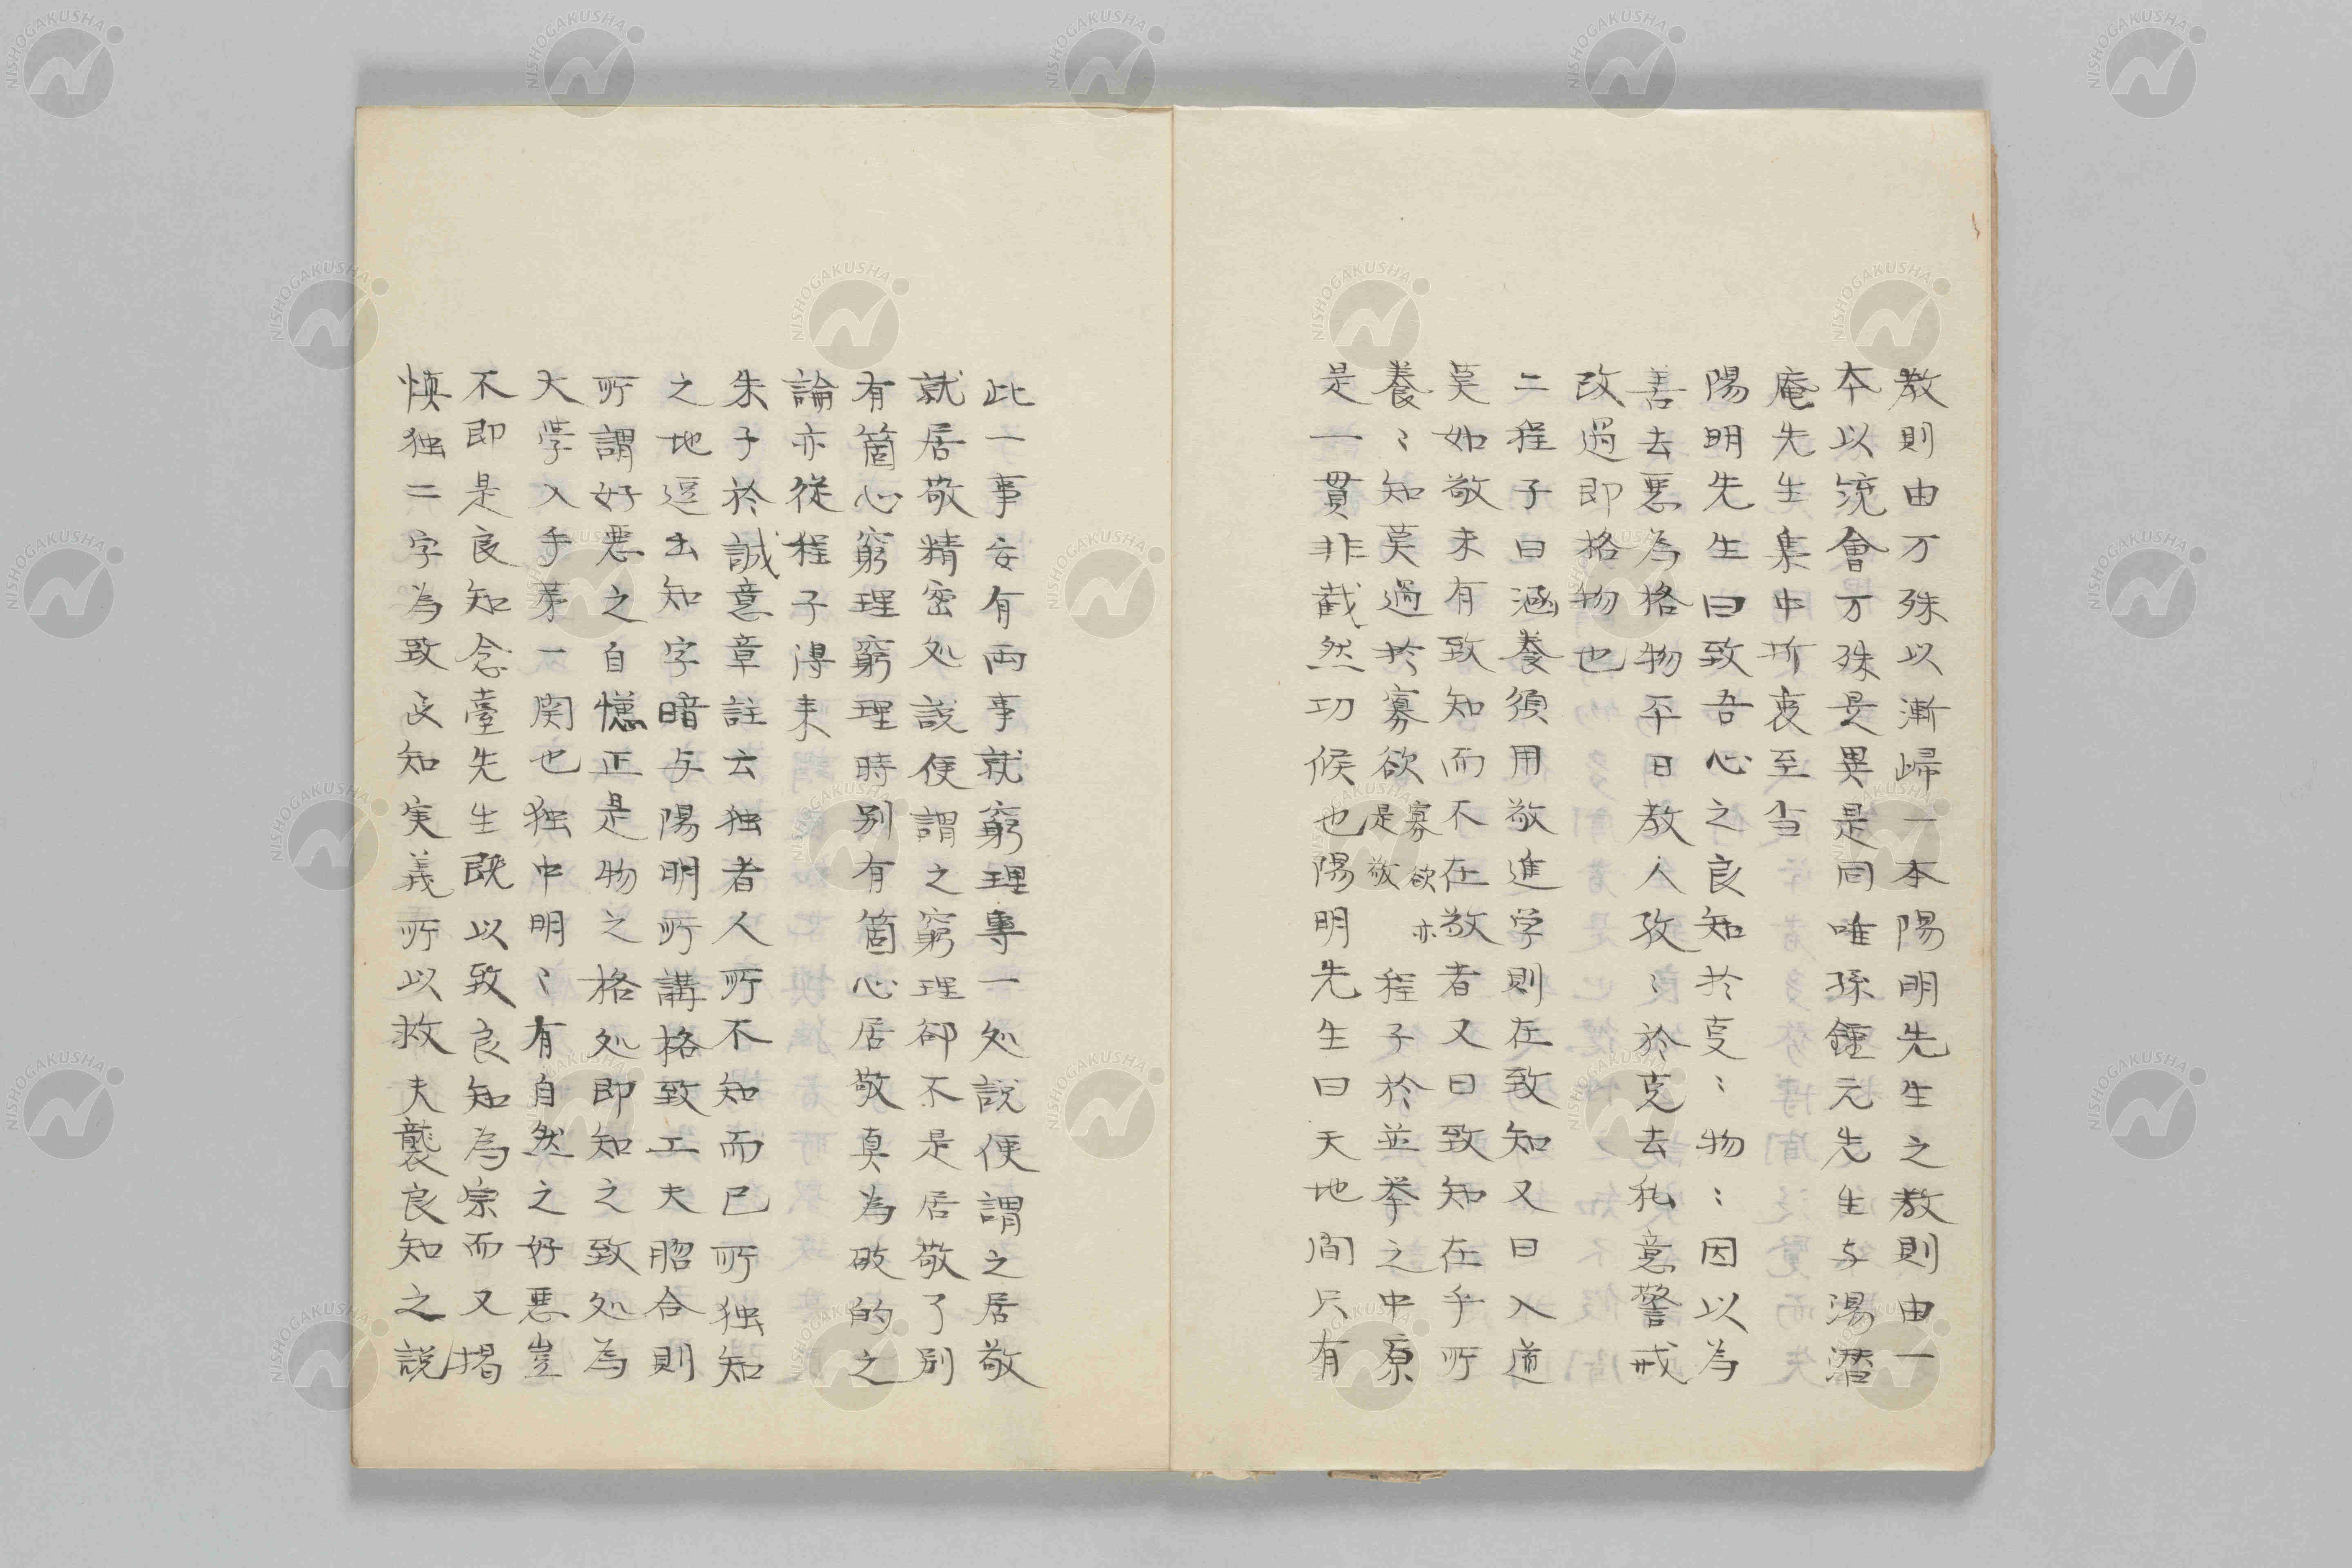 教則由万殊以漸歸一本陽明先生之教則由一
本以統會万殊是異是同唯孫鍾元先生与湯潛
庵先生集中折衷至当
陽明先生曰致吾心之良知於事〻物〻因以為
善去悪為格物平日教人孜〻於克去私意警戒
改過即格物也
二程子曰涵養須用敬進学則在致知又曰入道
莫如敬未有致知而不在敬者又曰致知在乎所
養〻知莫過於寡欲寡欲亦是敬程子於並挙之中原
是一貫非截然功候也陽明先生曰天地間只有
此一事安有両事就窮理專一処説便謂之居敬
就居敬精密処説便謂之窮理卻不是居敬了別
有箇心窮理窮理時別有箇心居敬真為破的之
論亦從程子得来
朱子於誠意章註云独者人所不知而已所独知
之地逗出知字暗与陽明所講格致工夫脗合則
所謂好悪之自慊正是物之格処即知之致処為
大学入手第一関也独中明〻有自然之好悪豈
不即是良知念臺先生既以致良知為宗而又掲
慎独二字為致良知実義所以救夫襲良知之説
NISHOGAKUSHA